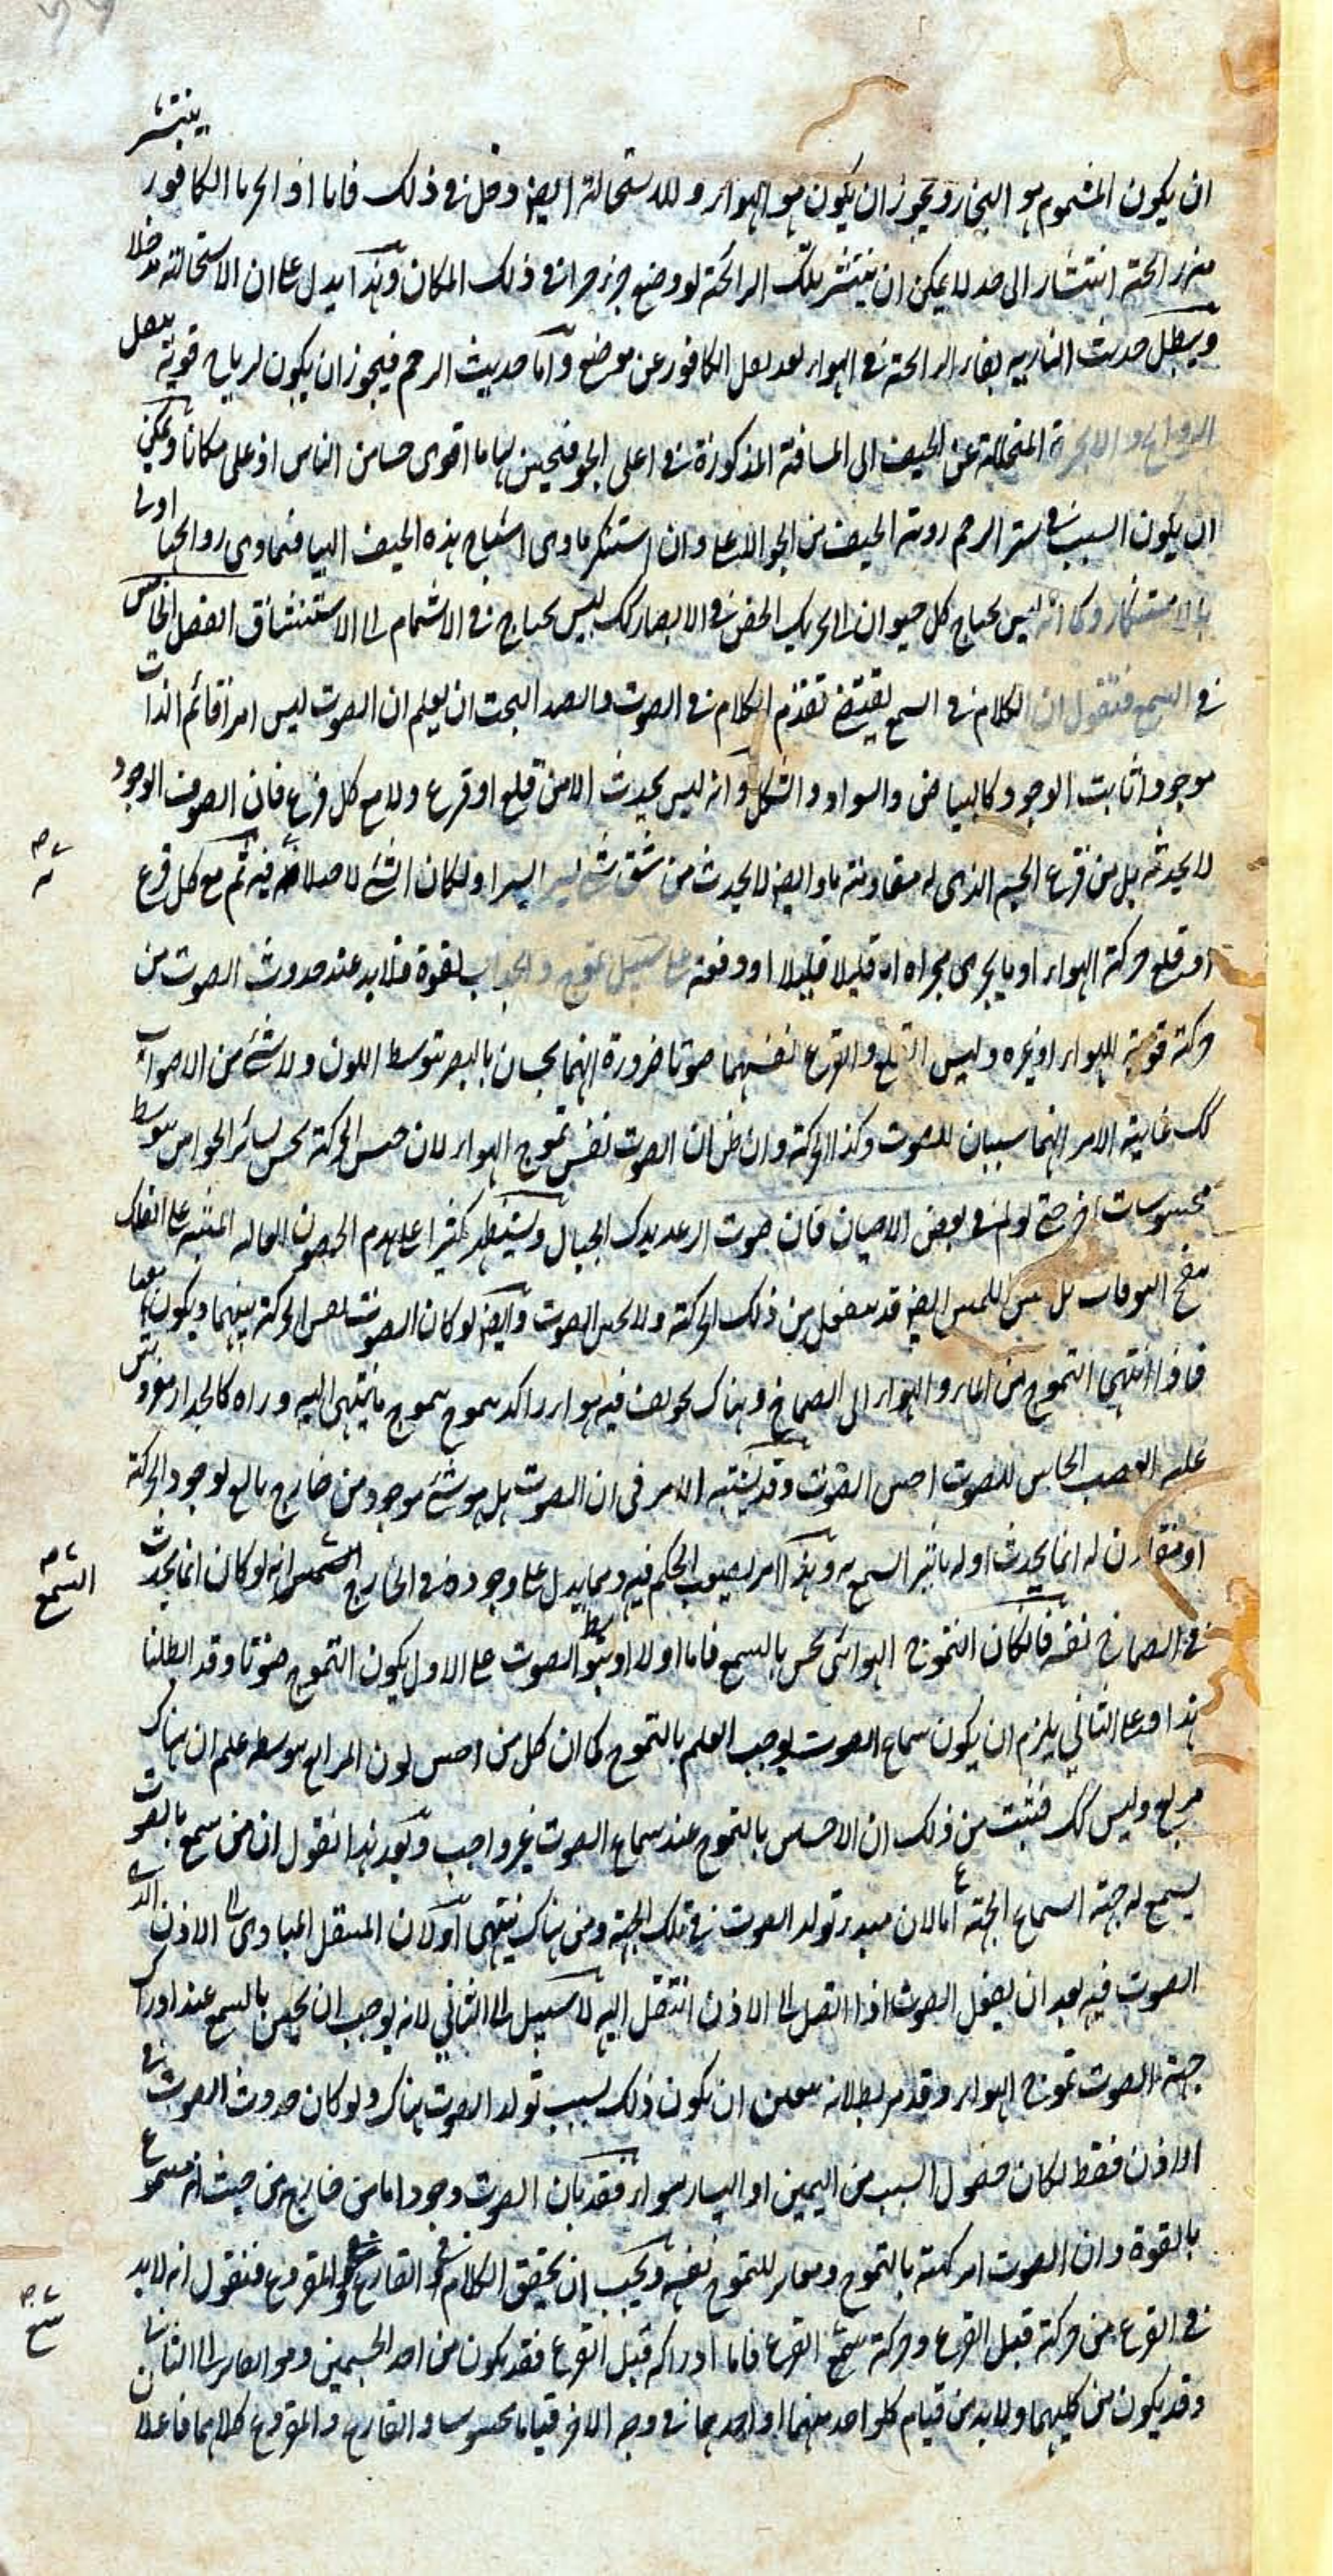 ان يكون المشموم هو البخار ويجوز ان يكون هو الهواء وللاستحالة ايضا دخل في ذلك فاما اذا بخرنا الكافور ينتشر
منه رائحة انتشارا الى حد لا يمكن ان ينتشر تلك الرائحة لو وضع جزء جزء في ذلك المكان وهذا يدل على ان الاستحالة مدخلا
ويبطل حديث النارية بقاء الرائحة في الهواء بعد نقل الكافور عن موضع واما حديث الرخم فيجوز ان يكون لرياح قوية ينقل
الروايح والابخرة المتحللة عن الجيف الى المسافة المذكورة في اعلى الجو فيحس بها ما اقوى حسا من الناس او على مكانا ويمكن
ان يكون السبب في الرخم روية الجيف من الجو الاعلى وان استنكر تادي اشباح هذه الجيف اليها فتادى روائحها اولى
بالاستنكار وكما انه ليس يحتاج كل حيوان الى تحريك الجفن في الابصار كك ليس يحتاج في الاشمام الى الاستنشاق الفصل الخامس
في السمع فنقول ان الكلام في السمع يقتضي تقدم الكلام في الصوت والصدا البحث ان يعلم ان الصوت ليس امرا قائم الذات
موجودا ثابت الوجود كالبياض والسواد والشكل وانه ليس يحدث الا من قلع او قرع ولا مع كل قرع فان الصوف الوجود
لا يحدثه بل من قرع الجسم الذي له مقاومة ما وايضا لا يحدث من شق شيء يسيرا يسيرا ولكان الشيء لا صلابة فيه ثم مع كل قرع
او قلع حركة الهواء او ما يجري مجراه اما قليلا قليلا او دفعة على سبيل تموج وانجذاب بقوة فلابد عند حدوث الصوت من
حركة قوية للهواء او غيره وليس القلع والقرع نفسهما صوتا ضرورة انهما يحسان بالبصر بتوسط اللون ولا شيء من الاصوات
كك غاية الامر انهما سببان للصوت وكذا الحركة وان ظن ان الصوت نفس تموج الهواء لان حس الحركة يحس بسائر الحواس بتوسط
محسوسات اخر حتى في بعض الاحيان فان صوت الرعد يدك الجبال ويستظهر كثيرا على هدم الحصون العالية
بل حس اللمس ايضا قد ينفعل من ذلك الحركة ولا يحس الصوت وايضا لو كان الصوت نفس الحركة
فاذا انتهى التموج من الماء والهواء الى الصماخ وهناك تجويف فيه هواء راكد يتموج بتموج ما ينتهي اليه وراه كالجدار مفروش
عليه العصب الحاس للصوت احس الصوت وقد يشتبه الامر في ان الصوت هل هو شيء موجود من خارج تابع لوجود الحركة
او مقارن له انما يحدث اوله بتأثير السمع به وهذا امر يصعب الحكم فيه ومما يدل على وجوده في الخارج انه لو كان انما يحدث
في الصماخ نفسه فالكان التموج الهوائي يحس بالسمع فاما اولا او بتوسط الصوت على الاول يكون التموج صوتا وقد ابطلنا
هذا وعلى الثاني يلزم ان يكون سماع الصوت يوجب العلم بالتموج كما ان كل من احس لون المربع بتوسطه علم ان هناك
مربع وليس كك فثبت من ذلك ان الاحساس بالتموج عند سماع الصوت غير واجب وبعد هذا نقول ان من سمع بالصوت
يسمع له جهة السماع الجهة اما لان مبدء تولد الصوت في تلك الجهة ومن هناك ينتهي او لان المنتقل المبادي الى الاذن الذي
الصوت فيه بعد ان يفعل الصوت اذا اتصل الى الاذن انتقل اليه لا سبيل الى الثاني لانه يوجب ان يحس بالسمع عند ادراك
جهة الصوت تموج الهواء وقد مر بطلانه فتعين ان يكون ذلك بسبب تولد الصوت هناك ولو كان حدوث الصوت في
الاذن فقط لكان حصول السبب من اليمين او اليسار سواء فقد بان ان الصوت وجودا ما من خارج من حيث انه مسموع
بالقوة وان الصوت امر كهيئة بالتموج ومغاير للتموج نفسه ويجب ان يحقق الكلام في القارع والمقروع فنقول انه لابد
في القرع من حركة قبل القرع وحركة يتبع القرع فاما ادراكه قبل القرع فقد يكون من احد الجسمين وهو الصائر الى الثاني
وقد يكون من كليهما ولا بد من قيام كل واحد منهما او احدهما في وجه الاخر قياما محسوسا والقارع والمقروع كلاهما فاعلان
السمع